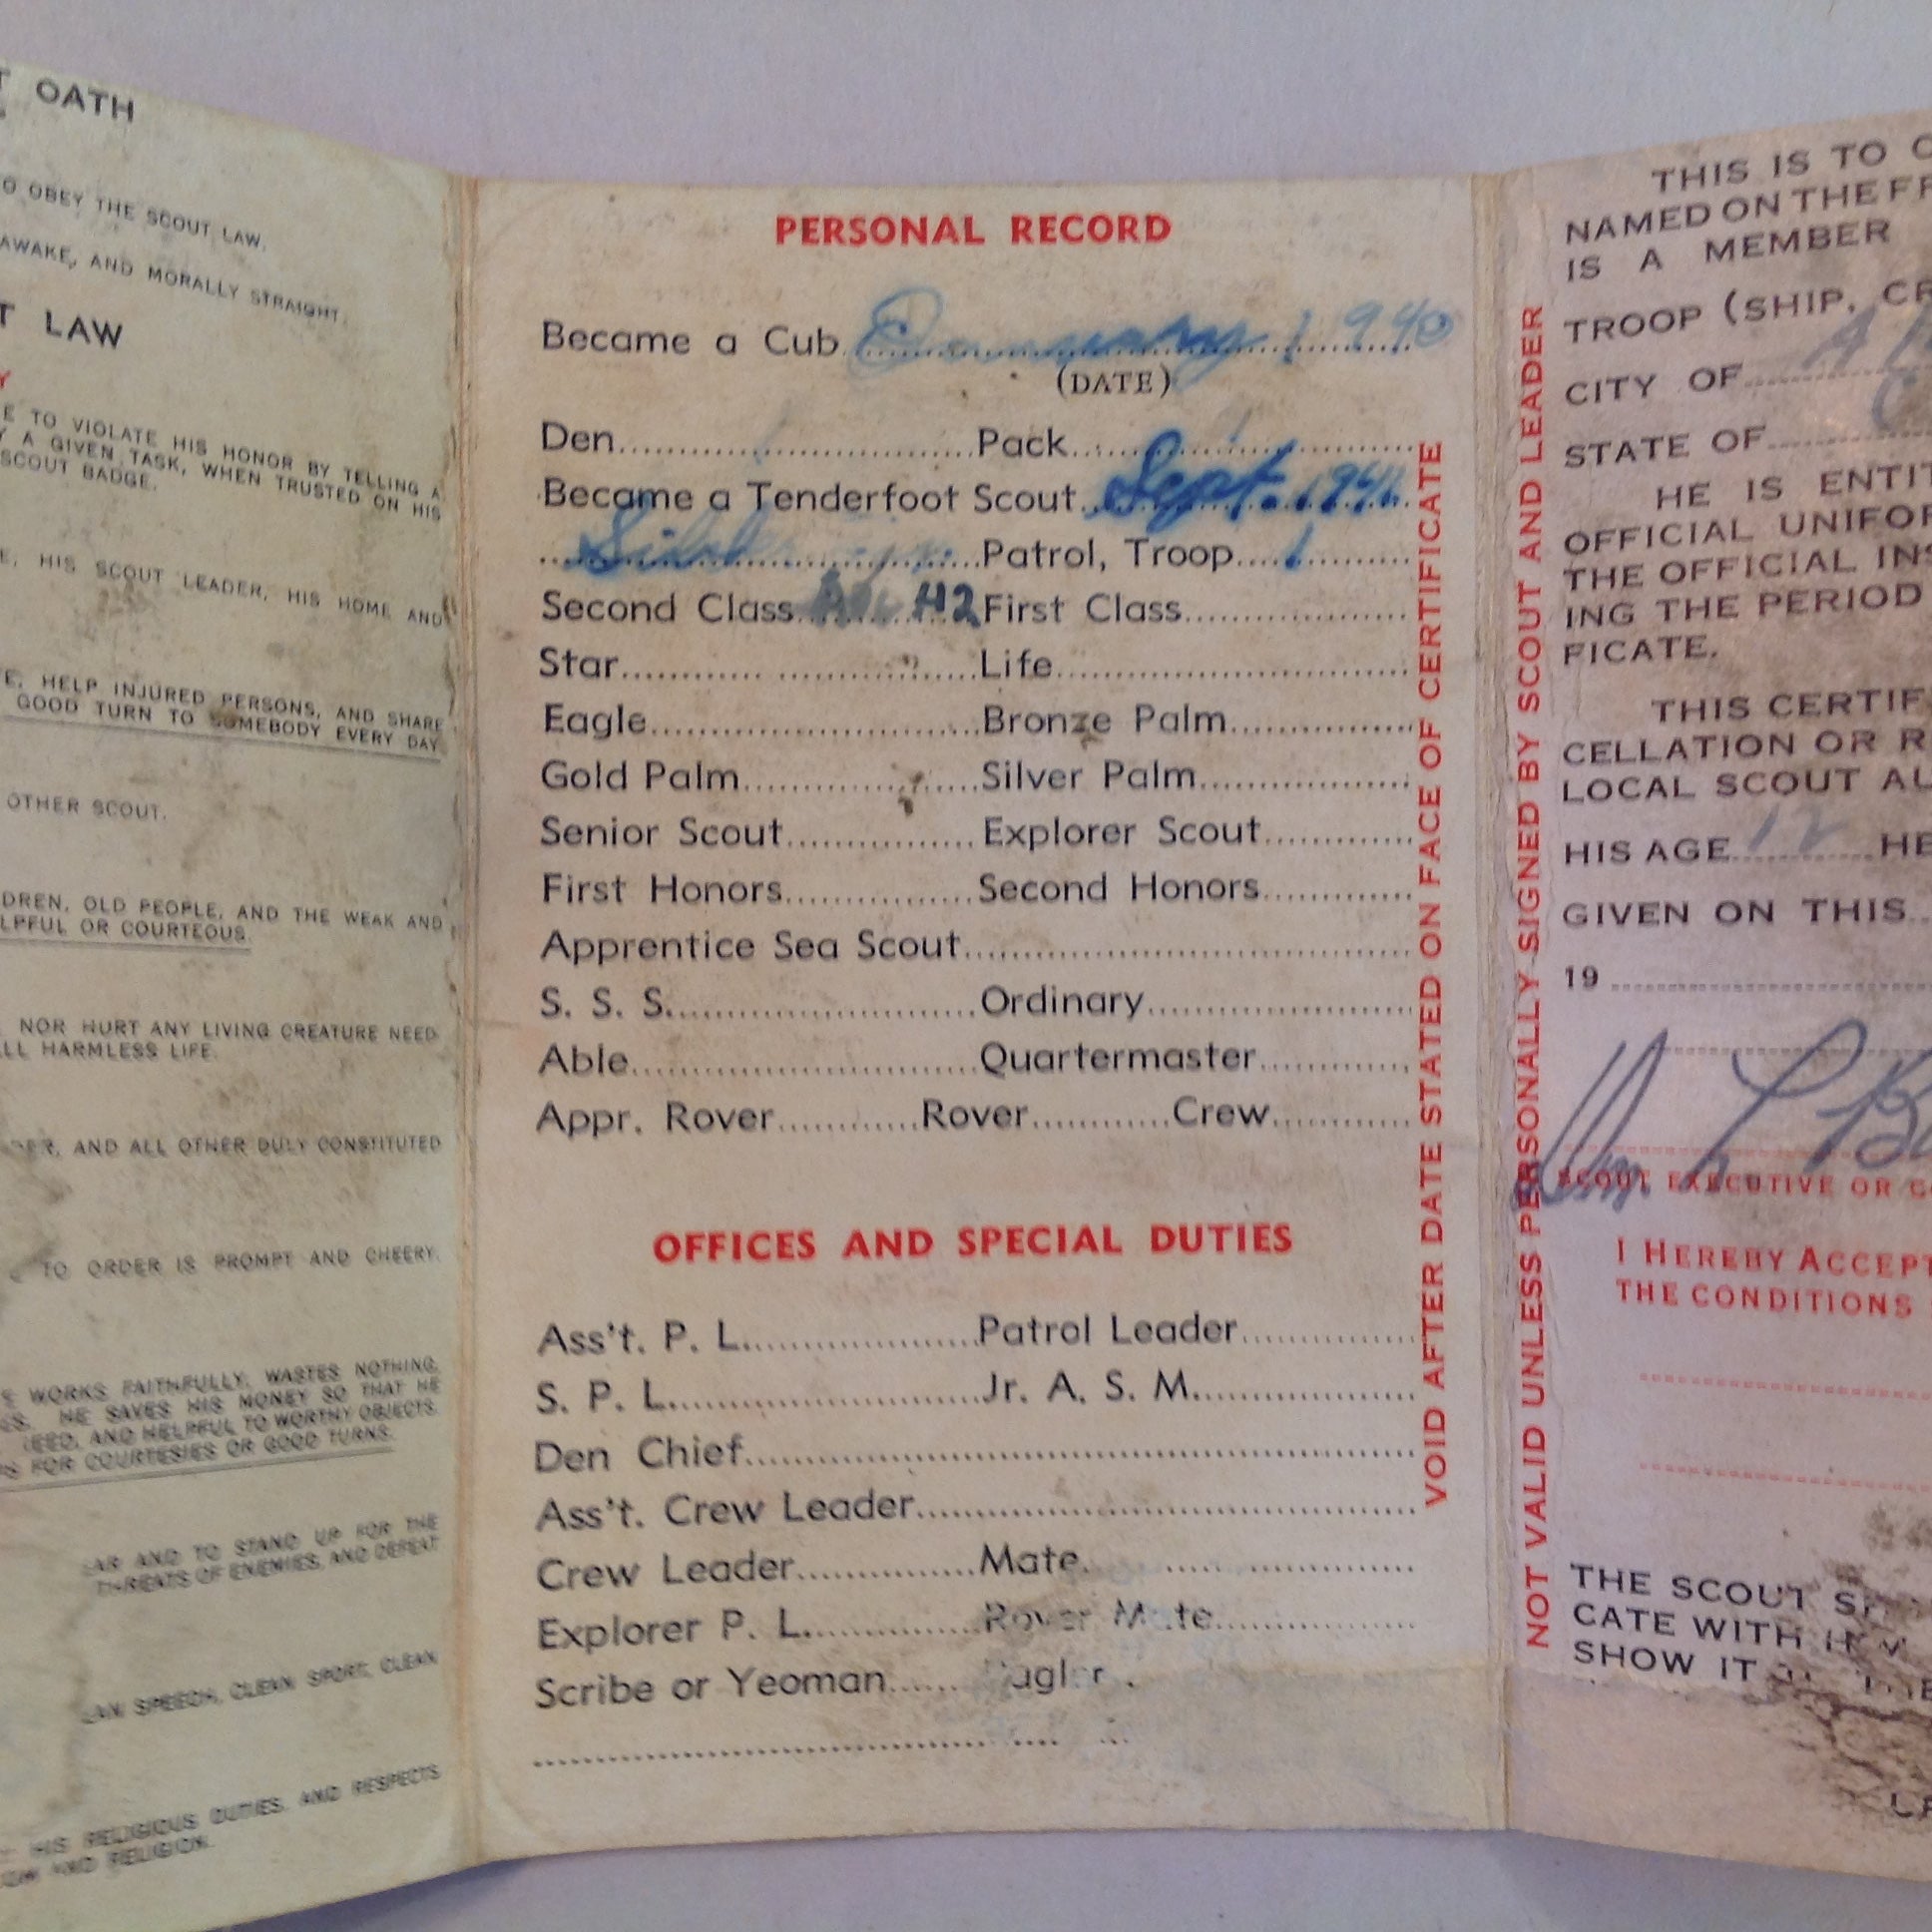 T OATH
O OBEY THE SCOUT LAW.
AWAKE, AND MORALLY STRAIGHT.
T LAW
Y
E TO VIOLATE HIS HONOR BY TELLING A
Y A GIVEN TASK, WHEN TRUSTED ON HIS
SCOUT BADGE.
E, HIS SCOUT LEADER, HIS HOME AND
E, HELP INJURED PERSONS, AND SHARE
GOOD TURN TO SOMEBODY EVERY DAY
OTHER SCOUT.
DREN, OLD PEOPLE, AND THE WEAK AND
LPFUL OR COURTEOUS.
NOR HURT ANY LIVING CREATURE NEED
LL HARMLESS LIFE.
DER, AND ALL OTHER DULY CONSTITUTED
TO ORDER IS PROMPT AND CHEERY.
E WORKS FAITHFULLY, WASTES NOTHING,
ES. HE SAVES HIS MONEY SO THAT HE
EED, AND HELPFUL TO WORTHY OBJECTS.
PS FOR COURTESIES OR GOOD TURNS.
AR AND TO STAND UP FOR THE
THREATS OF ENEMIES, AND DEFEAT
AN SPEECH, CLEAN SPORT, CLEAN
HIS RELIGIOUS DUTIES, AND RESPECTS
AND RELIGION.
PERSONAL RECORD
Became a Cub 1940
(DATE)
Den Pack 1
Became a Tenderfoot Scout Sept. 1941
Patrol, Troop 1
Second Class 42 First Class
Star Life
Eagle Bronze Palm
Gold Palm Silver Palm
Senior Scout Explorer Scout
First Honors Second Honors
Apprentice Sea Scout
S. S. S. Ordinary
Able Quartermaster
Appr. Rover Rover Crew
OFFICES AND SPECIAL DUTIES
Ass't. P. L. Patrol Leader
S. P. L. Jr. A. S. M.
Den Chief
Ass't. Crew Leader
Crew Leader Mate
Explorer P. L. Rover Mate
Scribe or Yeoman
VOID AFTER DATE STATED ON FACE OF CERTIFICATE
NOT VALID UNLESS PERSONALLY SIGNED BY SCOUT AND LEADER
THIS IS TO C
NAMED ON THE FR
IS A MEMBER
TROOP (SHIP, CR
CITY OF
STATE OF
HE IS ENTIT
OFFICIAL UNIFOR
THE OFFICIAL INS
ING THE PERIOD
FICATE.
THIS CERTIF
CELLATION OR R
LOCAL SCOUT AU
HIS AGE 12 HE
GIVEN ON THIS
19
Wm L
SCOUT EXECUTIVE OR C
I HEREBY ACCEPT
THE CONDITIONS
THE SCOUT
CATE WITH
SHOW IT